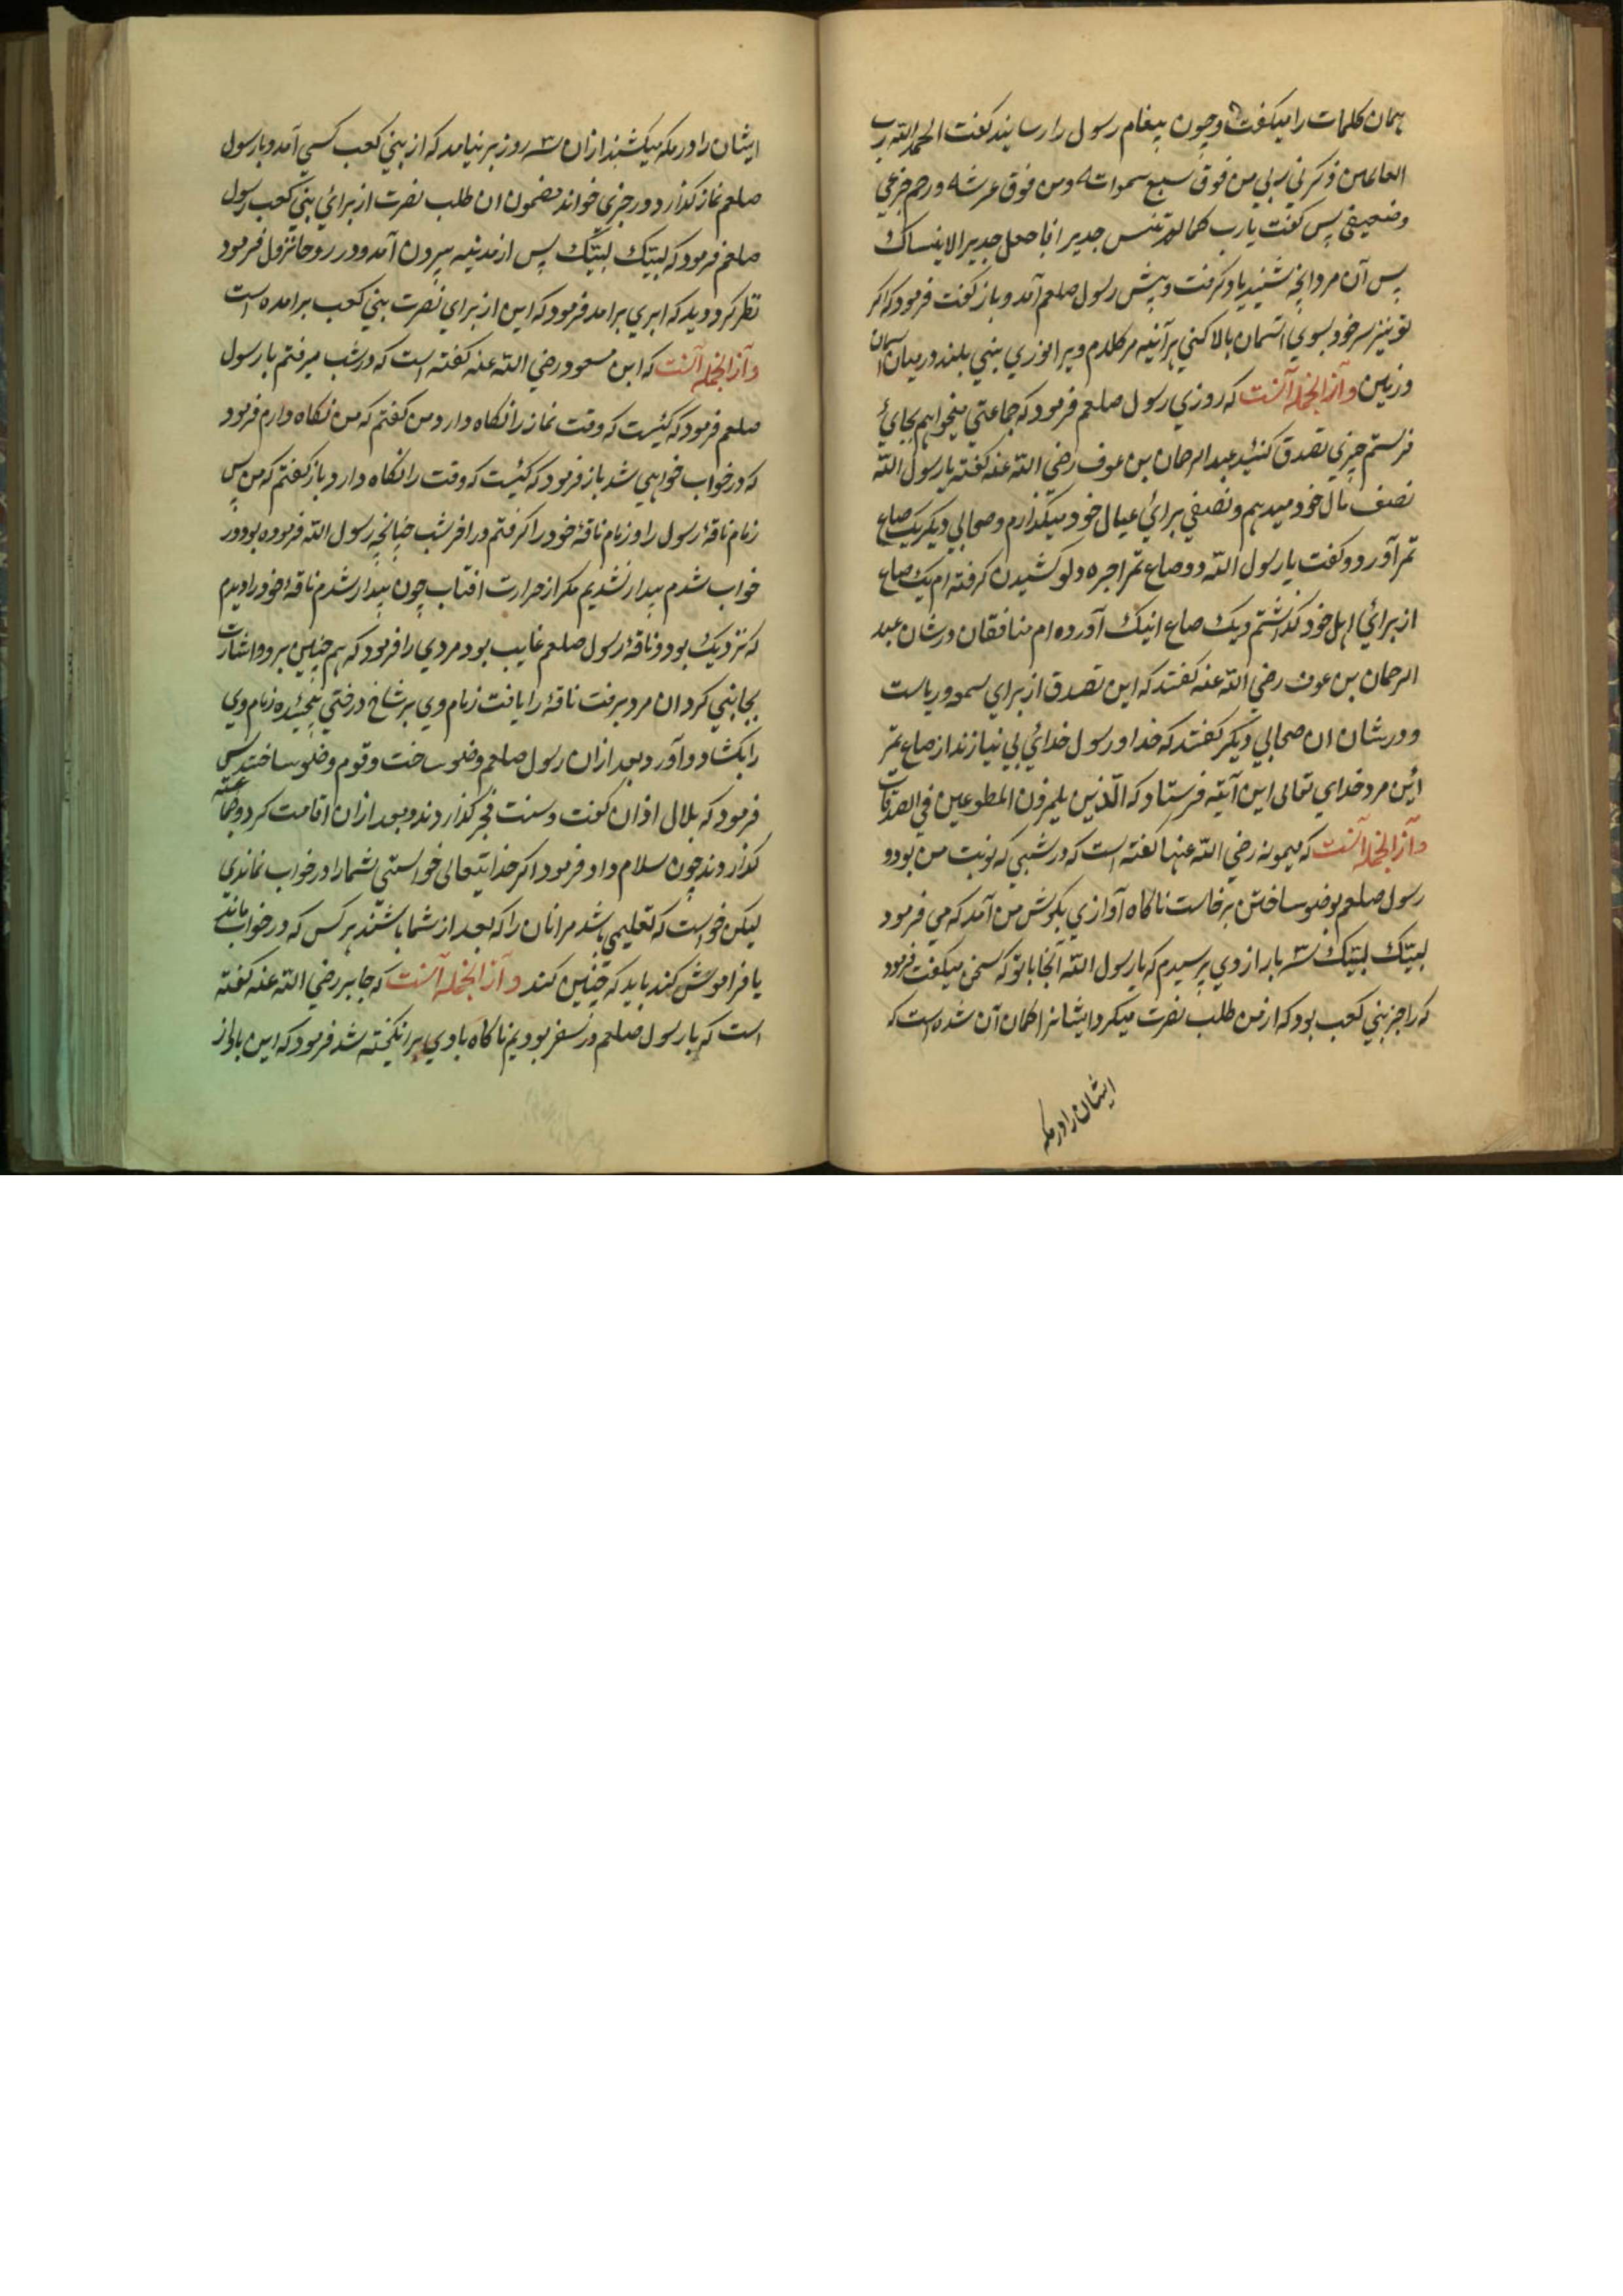 همان کلمات را میکفت و چون پیغام رسول را رسانیدند کفت الحمد لله رب
العالمین ذکرنی ربی من فوق سبع سموات و من فوق عرشه و رحم جزعی
وضعیفی پس کفت یارب کما لم تنس جدیرا فاجعل جدیرا لا ینساک
پس آن مرد انچه شنید یاد کرفت و پیش رسول صلعم آمد و باز کفت فرمود که اکر
تو نیز سر خود بسوی اسمان بالا کنی هرآئینه مر کلام ویرا نوری بینی بلند در میان اسمان
وزمین وآز انجمله آنست که روزی رسول صلعم فرمود که جماعتی میخواهم بجایٔ
فرستم چیزی تصدق کنید عبد الرحمان بن عوف رضی الله عنه کفته یا رسول الله
نصف مال خود میدهم و نصفی برایٔ عیال خود میکذارم و صحابی دیکر یک صاع
تمر آورد و کفت یا رسول الله دو صاع تمر اجره دلو کشیدن کرفته ام یک صاع
از برایٔ اهل خود کذاشتم و یک صاع اینک آورده ام منافقان در شان عبد
الرحمان بن عوف رضی الله عنه کفتند که این تصدق از برای سمعه و ریاست
و در شان ان صحابی دیکر کفتند که خدا و رسول خدایٔ بی نیازند از صاع تمر
این مرد خدای تعالی این آیته فرستاد که الذین یلمزون المطوعین فی الصدقات
وآز انجمله آنست که میمونه رضی الله عنها کفته است که در شبی که نوبت من بود و
رسول صلعم بوضو ساختن برخاست ناکاه آوازی بکوش من آمد که می فرمود
لبیک لبیک سه بار از وی پرسیدم که یا رسول الله آنجا با تو که سخن میکفت فرمود
که راجز بنی کعب بود که از من طلب نصرت میکرد ایشانرا کمان آن شده است که
ایشان را در مکه
ایشان را در مکه میکشند ازان سه روز بر نیامد که از بنی کعب کسی آمد و با رسول
صلعم نماز کذارد و رجزی خواند مضمون ان طلب نصرت از برایٔ بنی کعب رسول
صلعم فرمود که لبیک لبیک پس از مدینه بیرون آمد و در روحا نزول فرمود
نظر کرد و دید که ابری برامد فرمود که این از برای نصرت بنی کعب برامده است
وآز انجمله آنست که ابن مسعود رضی الله عنه کفته است که در شب میرفتم با رسول
صلعم فرمود که کیست که وقت نماز را نکاه دارد من کفتم که من نکاه دارم فرمود
که در خواب خواهی شد باز فرمود که کیست که وقت را نکاه دارد باز کفتم که من پس
زمام ناقهٔ رسول را و زمام ناقهٔ خود را کرفتم در اخر شب چنانچه رسول الله فرموده بود در
خواب شدم بیدار نشدیم مکر از حرارت افتاب چون بیدار شدم ناقهٔ خود را دیدم
که نزدیک بود و ناقهٔ رسول صلعم غایب بود مردی را فرمود که هم چنین برو و اشارت
بجانبی کرد ان مرد برفت ناقهٔ را یافت زمام وی بر شاخ درختی پیچیده زمام وی
را بکشاد و آورد بعد ازان رسول صلعم وضو ساخت و قوم وضو ساختند پس
فرمود که بلال اذان کفت و سنت فجر کذاردند و بعد ازان اقامت کرد و جماعته
کذاردند چون سلام داد فرمود اکر خدایتعالی خواستی شما را در خواب نماندی
لیکن خواست که تعلیمی باشد مرانان را که بعد از شما باشند هر کس که در خواب ماند
یا فراموش کند باید که چنین کند وآز انجمله آنست که جابر رضی الله عنه کفته
است که با رسول صلعم در سفر بودیم ناکاه بادی برانکیخته شد فرمود که این باد از